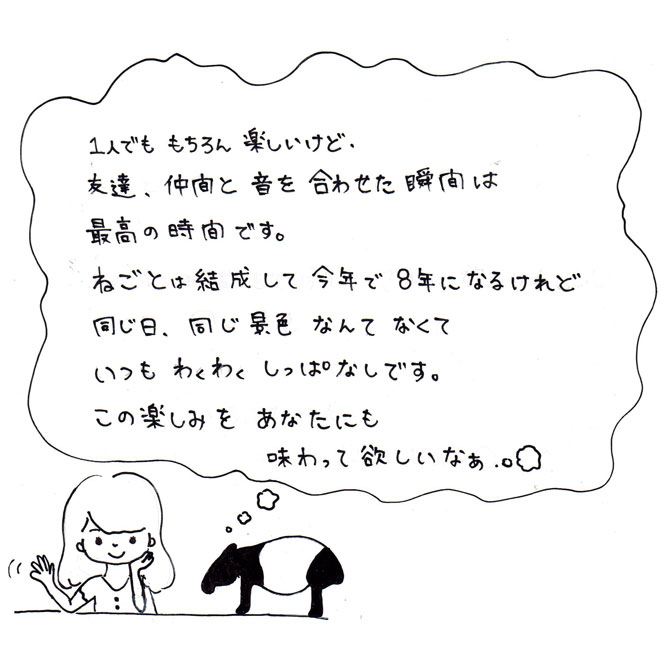 1人でも もちろん 楽しいけど、
友達、仲間と 音を 合わせた 瞬間は
最高の時間です。
ねごとは結成して 今年で 8年になるけれど
同じ日、同じ景色 なんて なくて
いつも わくわく しっぱなしです。
この楽しみを あなたにも
味わって欲しいなぁ…